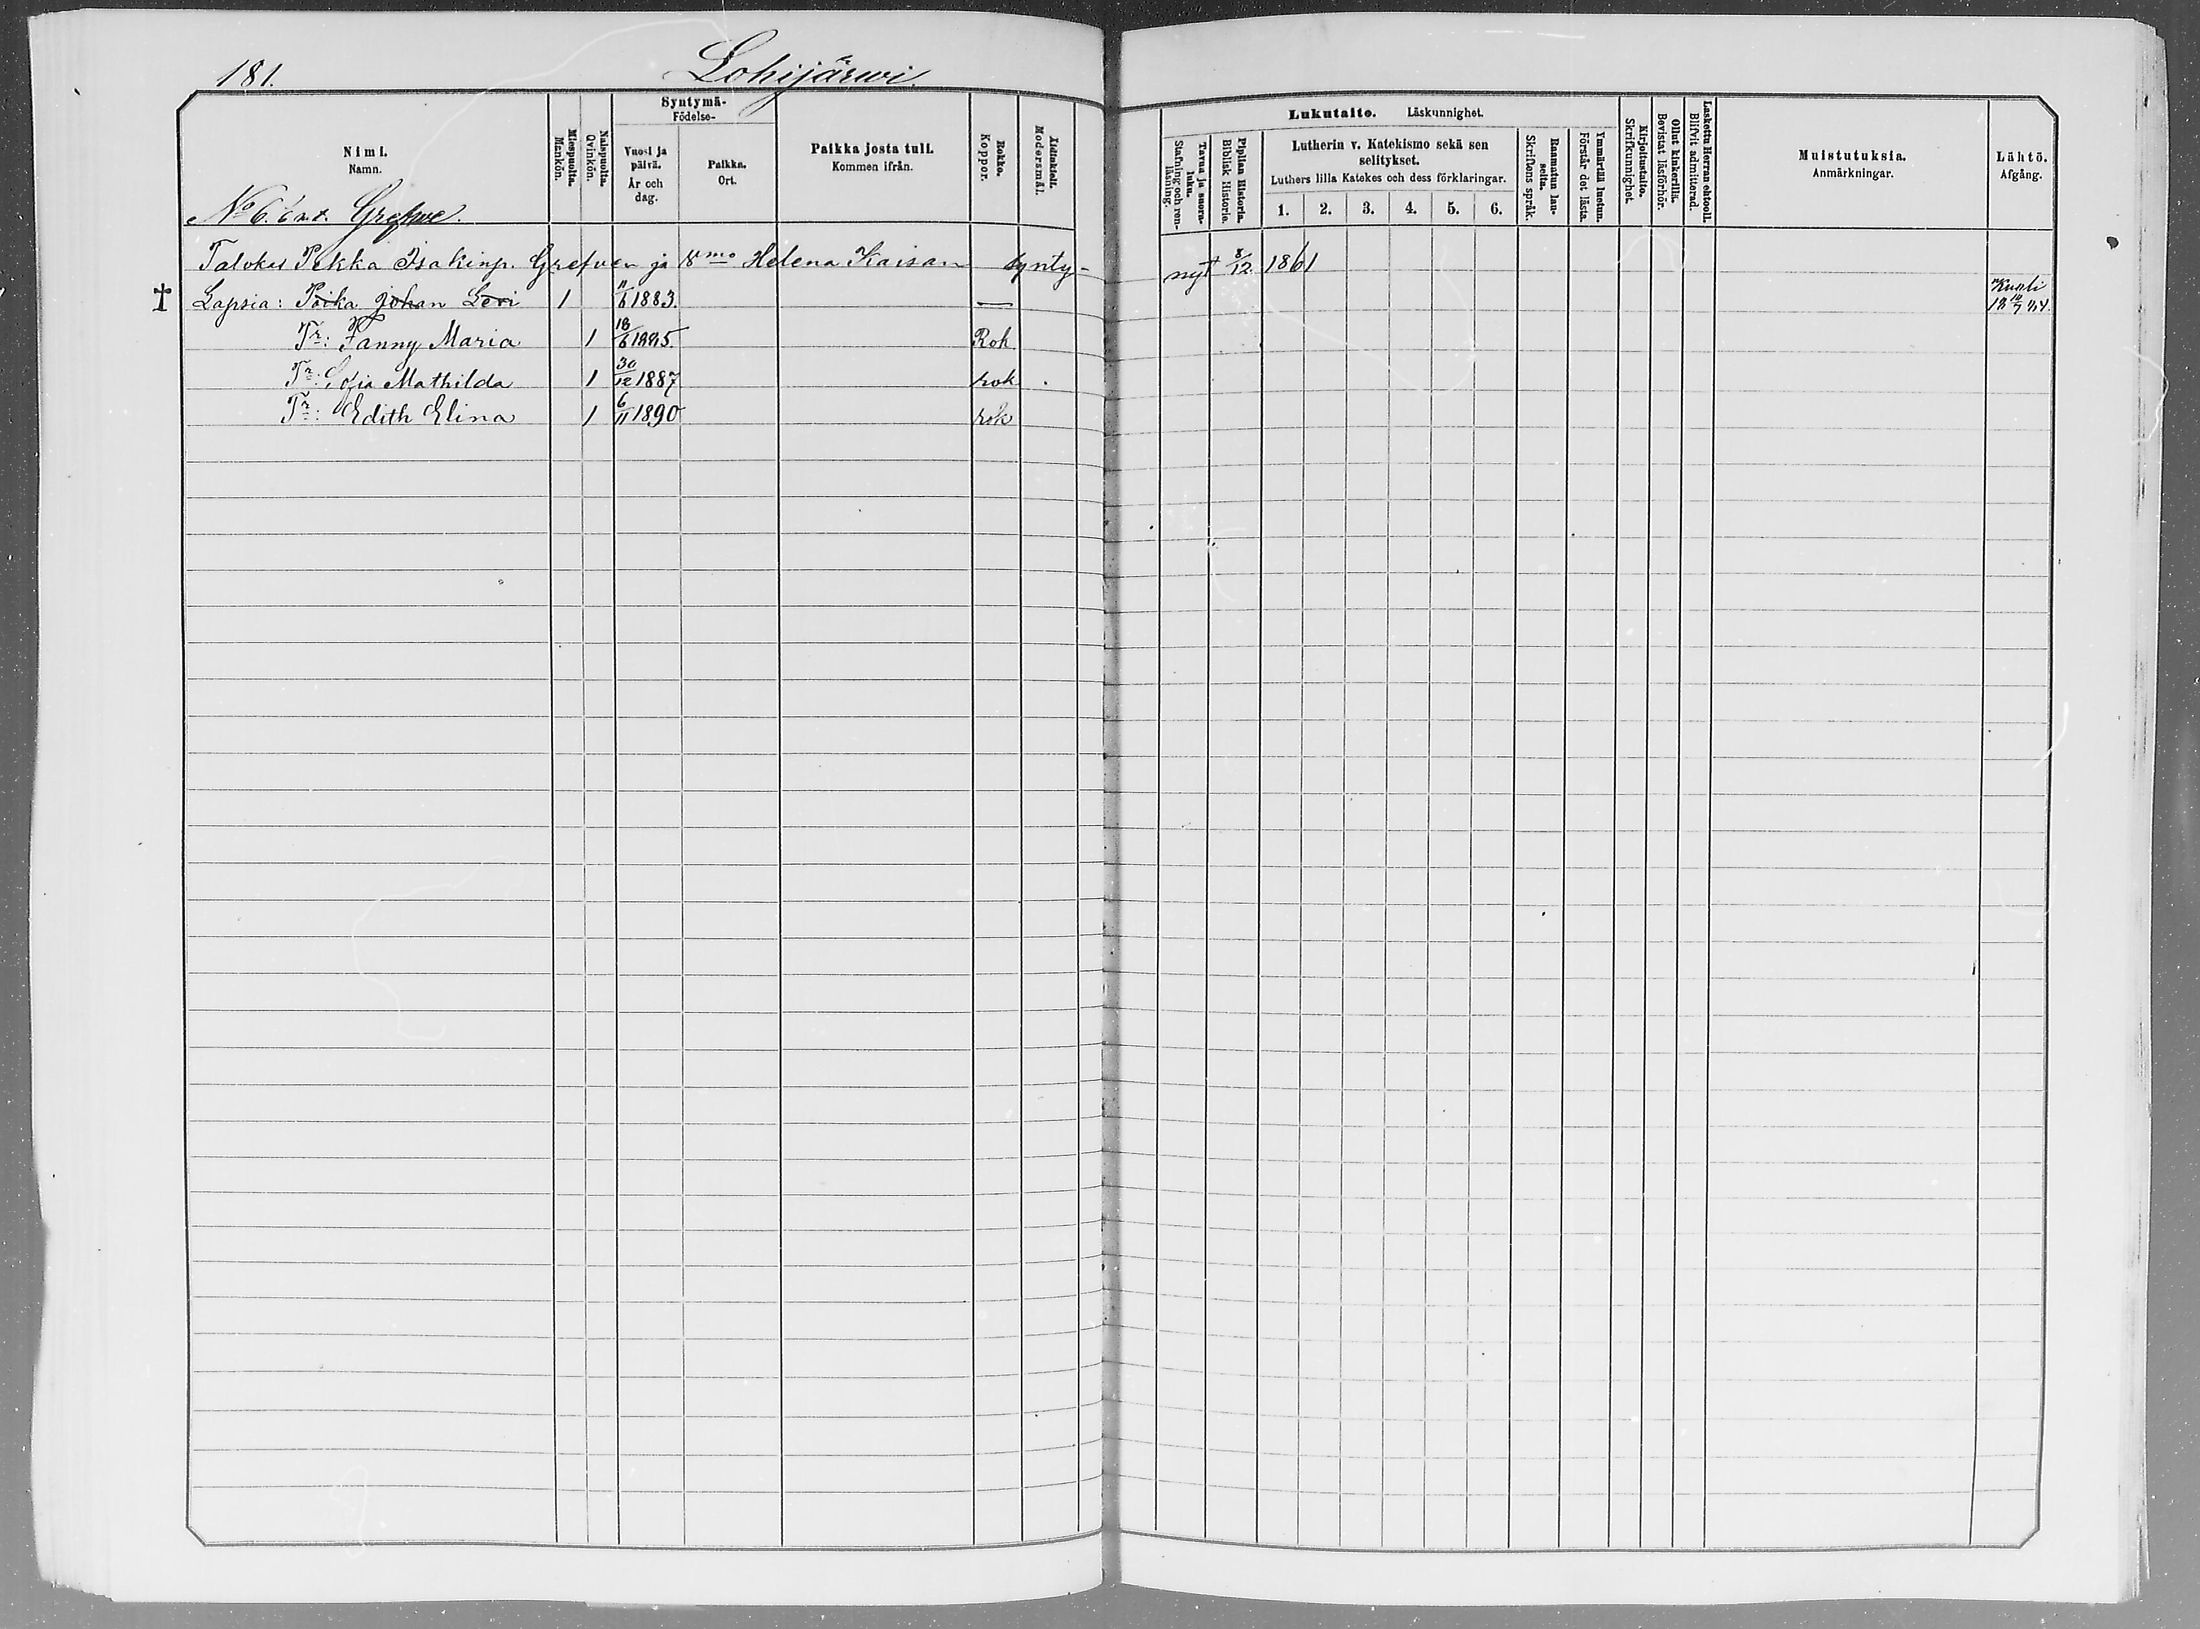 181.
Lohijärwi.
Nimi.
Namn.
Miespuolta.
Mankön.
Naispuolta.
Qvinkön.
Syntymä-
Födelse-
Vuosi ja
päivä.
År och
dag.
Paikka.
Ort.
Paikka josta tuli.
Kommen ifrån.
Rokko.
Koppor.
Äidinkieli.
Modersmål.
Lukutaito. Läskunnighet.
Tavaa ja suora-
luku.
Stafning och ren-
läsning.
Piplian Historia.
Biblisk Historie.
Lutherin v. Katekismo sekä sen
selitykset.
Luthers lilla Katekes och dess förklaringar.
1. 2. 3. 4. 5. 6.
Raamatun lau-
seita.
Skriftens språk.
Ymmärtää luetun.
Förstår det lästa.
Kirjoitustaito.
Skrifkunnighet.
Ollut kinkerillä.
Bevistat läsförhör.
Laskettu Herran ehtooll.
Blifvit admitterad.
Muistutuksia.
Anmärkningar.
Lähtö.
Afgång.
No 6. Grefwe.
Talokas Pekka Isakinp. Grefven ja Vmo Helena Kaisan synty- nyt 8/12 1861
† Lapsia: Poika Johan Levi 1 11/6 1883. — Kuoli
Tr: Fanny Maria 1 18/6 1885. Rok
Tr: Sofia Mathilda 1 30/12 1887 rok
Tr: Edith Elina 1 6/11 1890 rok